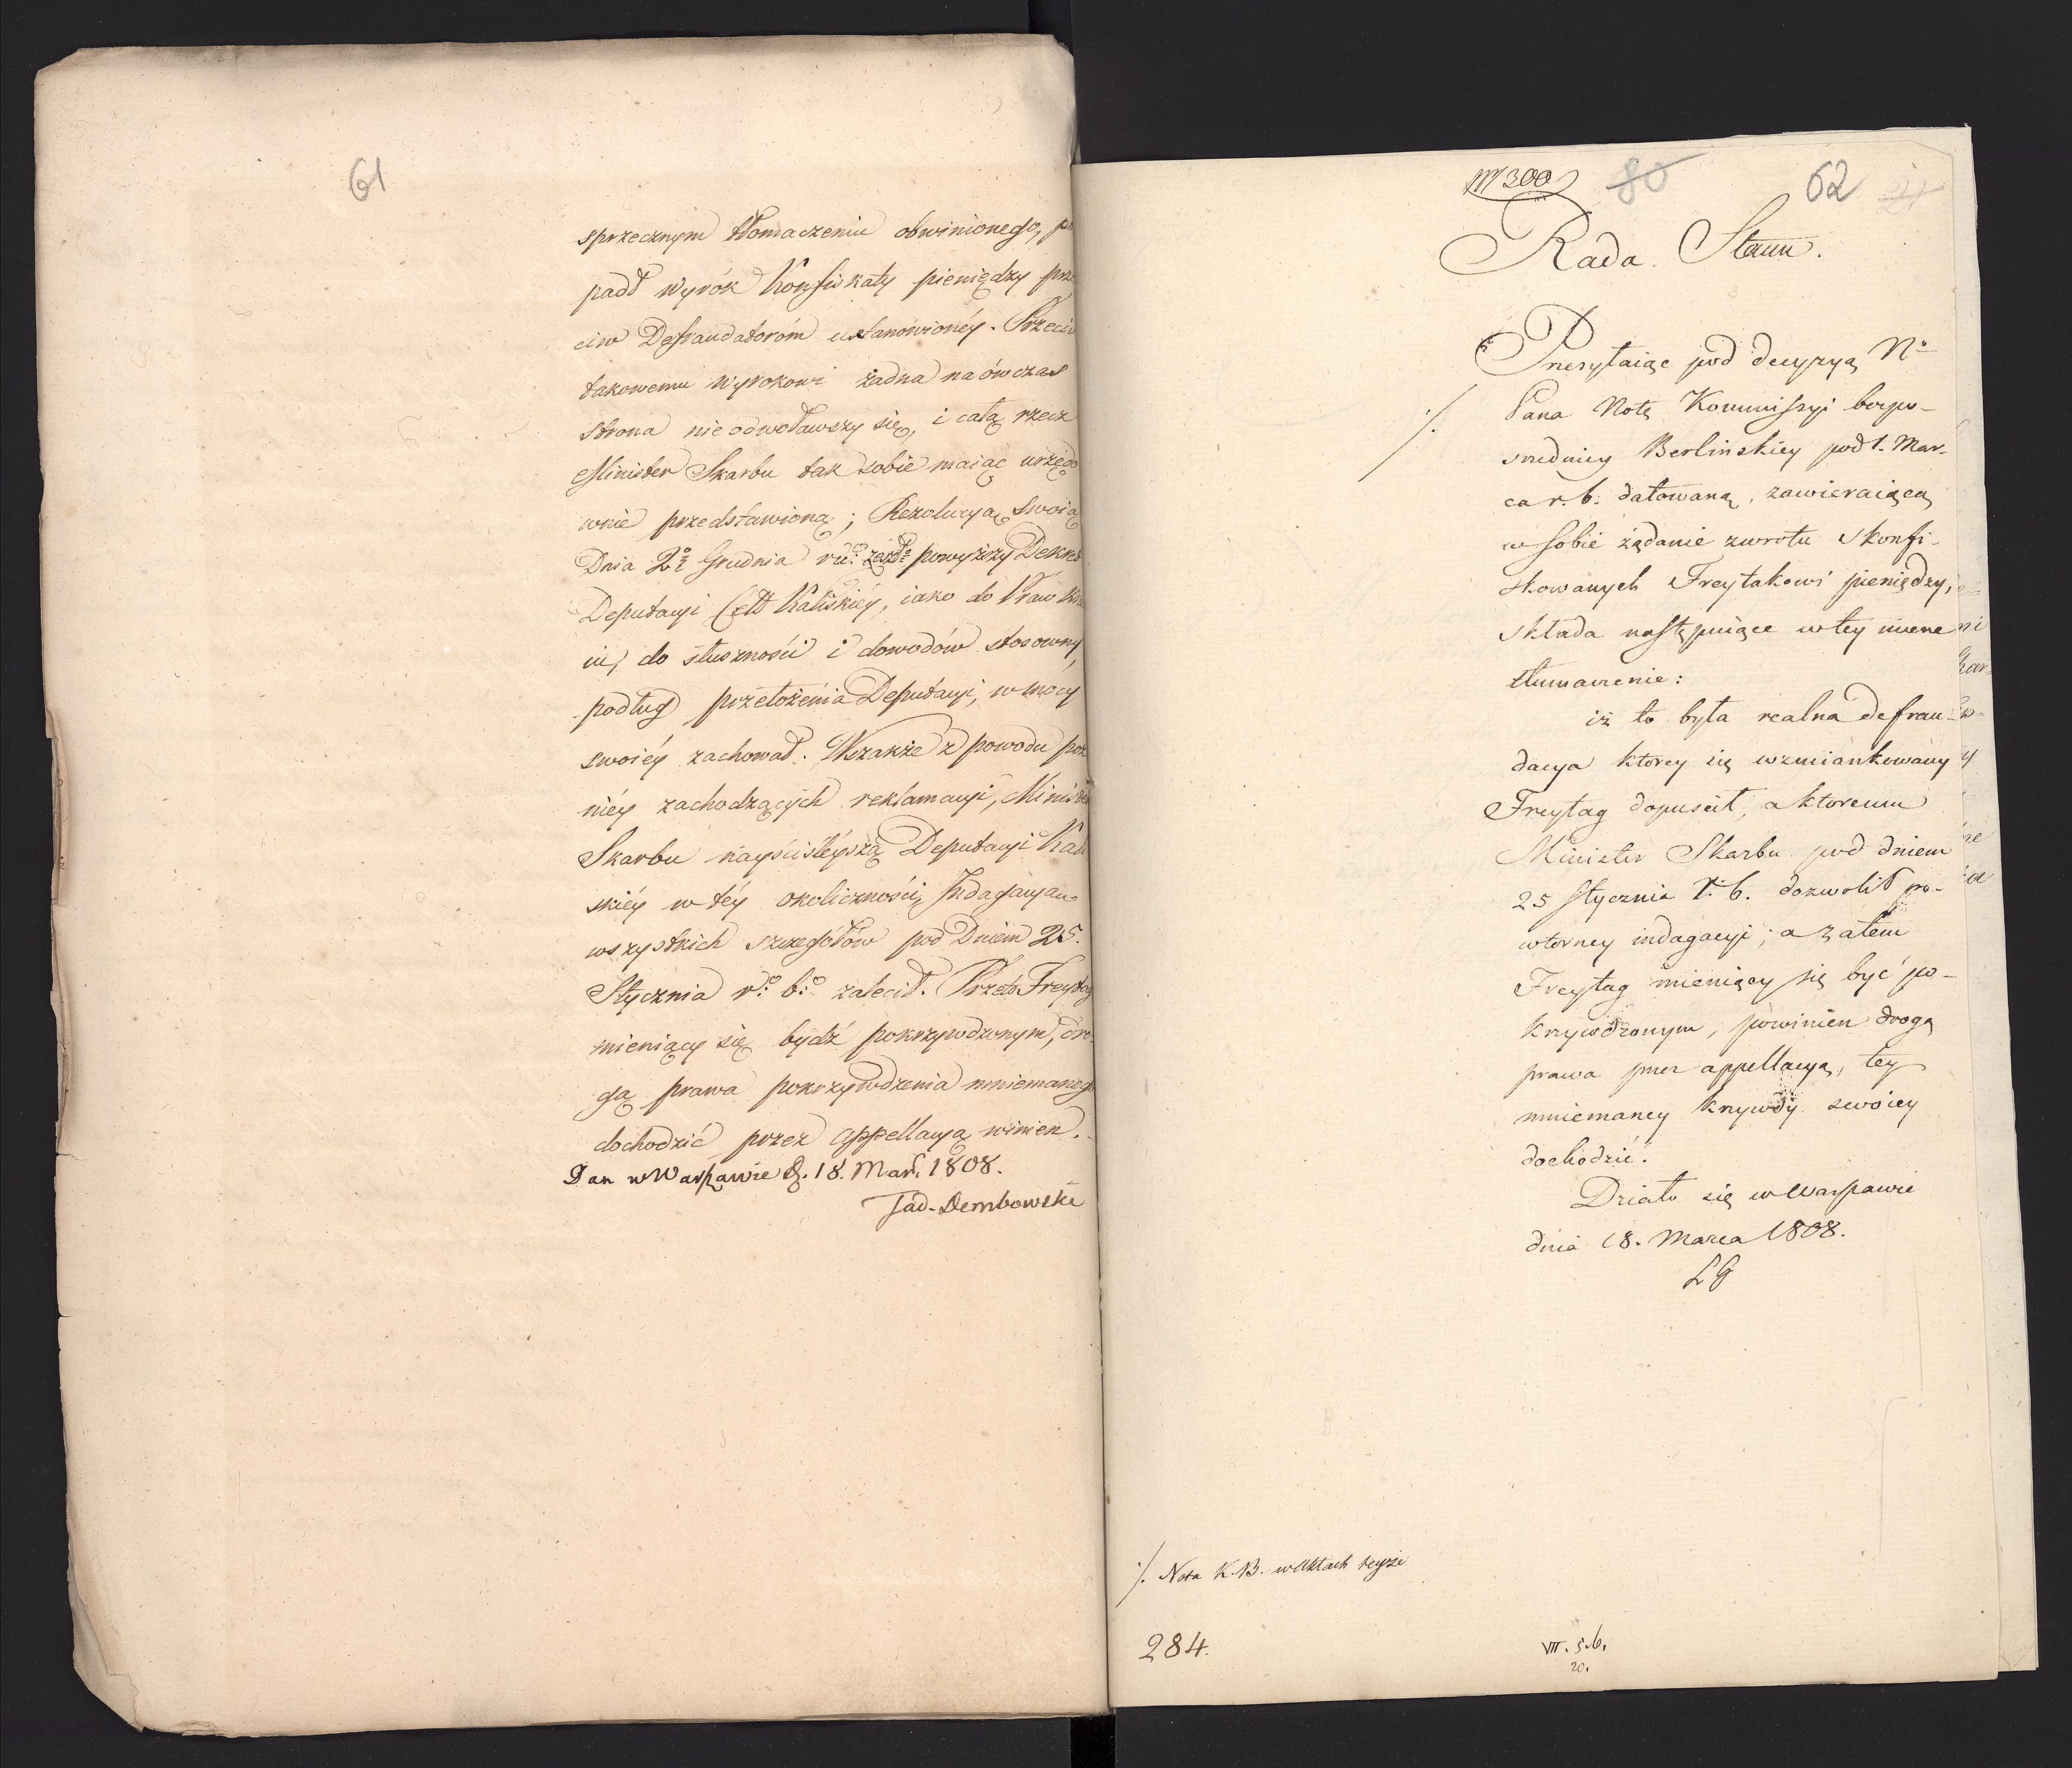 61
sprzecznym tłomaczeniu obwinionego, po
padł wyrók Konfiskaty pieniędzy prze
ciw Defraudatoróm ustanówionéy. Przeciw
takowemu wyrokowi żadna naówczas
strona nieodwoławszy się, i całą rzecz
Minister Skarbu tak sobie maiąc urzędo
wnie przedstawioną; Rezolucyą swoią
Dnia 2º Grudnia r.u: powyższy Dekret
Deputacyi Cełł Kaliskiéy, iako do Praw
iu, do słuszności i dowodów stosowny,
podług przełożenia Deputacyi, w mocy
swoiéy zachował. Wszakże z powodu poz
niéy zachodzących reklamacyi, Minister
Skarbu nayściśleyszą Deputacyi Kali
skiéy w téy okoliczności Indagacyą
wszystkich szczegółów pod Dniem 25.
Stycznia r: b: zalecił. Przeto Freytag
mieniący się bydź pokrzywdzonym, dro-
gą prawa pokrzywdzenia mniemanego
dochodzić przez appellacyą winien.
Dan w Warszawie d. 18. Mar. 1808.
Tad. Dembowski
N 300
80
62
21
Rada Stanu.
Przesyłaiąc pod decyzyą Nº
./. Pana Notę Kommissyi bezpo-
sredniey Berlinskiey pod 1. Mar-
ca r. b. datowaną, zawieraiącą
w sobie żądanie zwrotu skonfi-
skowanych Freytakowi pieniędzy,
składa następuiące w tey mierze
tłumaczenie:
iż to była realna defrau-
dacya ktorey się wzmiankowany
Freytag dopuścił, a ktoremu
Minister Skarbu pod dniem
25 Stycznia r. b. dozwolił po-
wtorney indagacyi; a zatem
Freytag mieniący się być po-
krzywdzonym, powinien drogą
prawa przez appellacyą, tey
mniemaney krzywdy swoiey
dochodzić.
Działo się w Warszawie
dnia 18. Marca 1808.
LG
./. Nota K. B. w Aktach teyże
284.
VII. 5.6.
20.